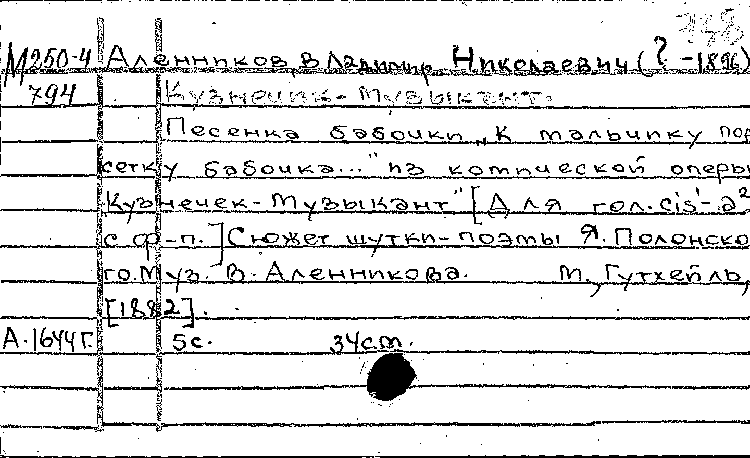 738
М250-4 Аленников, Владимир Николаевич (? -1896)
794 Кузнечик-Музыкант.
Песенка бабочки "К мальчику под
сетку бабочка..." из комической оперы
Кузнечек-Музыкант" [Для гол. cis¹-a²
с ф-п.] Сюжет шутки-поэмы Я. Полонско
го. Муз. В. Аленникова. М., Гутхейль,
[1882].
А.1644г. 5с. 34cm.